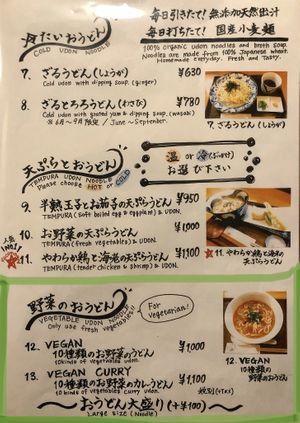 冷たいおうどん
COLD UDON NOODLE
毎日引きたて! 無添加天然出汁
毎日打ちたて! 国産小麦麺
100% organic udon noodles and broth soup.
Noodles are made from 100% Japanese wheat.
Homemade everyday. Fresh and Tasty.
7. ざるうどん(しょうが) ¥630
Cold udon with dipping soup. (ginger)
8. ざるとろろうどん(わさび) ¥780
Cold udon with grated yam & dipping soup. (wasabi)
※6月~9月限定 / June ~ September.
7. ざるうどん(しょうが)
天ぷらとおうどん
TEMPURA UDON NOODLE
Please choose HOT or COLD
温 or 冷(ぶっかけ)
お選び下さい
9. 半熟玉子とお茄子の天ぷらうどん ¥950
TEMPURA (soft boiled egg & eggplant) & UDON.
10. お野菜の天ぷらうどん ¥1,000
TEMPURA (fresh vegetables) & UDON.
人気No1!
11. やわらか鶏と海老の天ぷらうどん ¥1,100
TEMPURA (tender chicken & shrimp) & UDON.
11. やわらか鶏と海老の
天ぷらうどん
野菜のおうどん
VEGETABLE UDON NOODLE
Only use fresh vegetables!!
For vegetarian!
12. VEGAN ¥1,000
10種類のお野菜のうどん
10kinds of vegetables udon.
13. VEGAN CURRY ¥1,100
10種類のお野菜のカレうどん
10kinds of vegetables curry udon.
税別(+TAX)
12. VEGAN
10種類の
お野菜のうどん
おうどん大盛り(+¥100)
Large Size (Noodle)